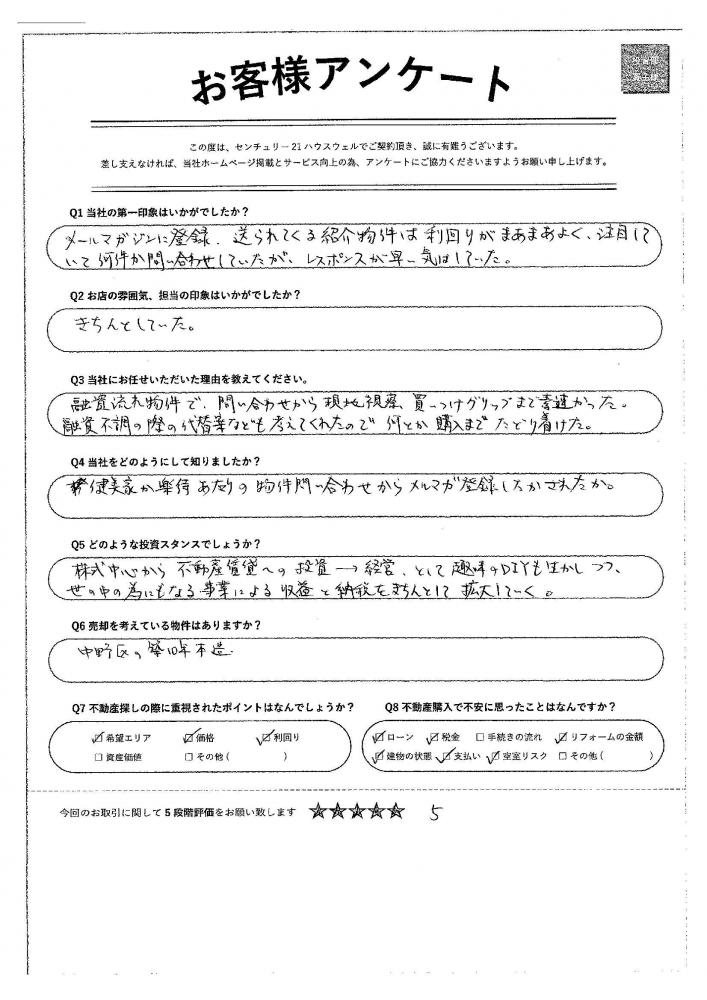 お客様アンケート
この度は、センチュリー21ハウスウェルでご契約頂き、誠に有難うございます。
差し支えなければ、当社ホームページ掲載とサービス向上の為、アンケートにご協力くださいますようお願い申し上げます。
Q1 当社の第一印象はいかがでしたか？
メールマガジンに登録、送られてくる紹介物件は利回りがまあまあよく、注目して
いて何件か問い合わせしていたが、レスポンスが早い気はしていた。
Q2 お店の雰囲気、担当の印象はいかがでしたか？
きちんとしていた。
Q3 当社にお任せいただいた理由を教えてください。
融資流れ物件で、問い合わせから現地視察、買いつけグリップまで素速かった。
融資不調の際の代替案なども考えてくれたので何とか購入までたどり着けた。
Q4 当社をどのようにして知りましたか？
健美家か楽待あたりの物件問い合わせからメルマガ登録したかされたか。
Q5 どのような投資スタンスでしょうか？
株式中心から不動産賃貸への投資→経営、として趣味のDIYも生かしつつ、
世の中の為にもなる事業による収益と納税をきちんとして拡大していく。
Q6 売却を考えている物件はありますか？
中野区の築10年木造
Q7 不動産探しの際に重視されたポイントはなんでしょうか？
Q8 不動産購入で不安に思ったことはなんですか？
☑希望エリア ☑価格 ☑利回り
□資産価値 □その他（ ）
☑ローン ☑税金 □手続きの流れ ☑リフォームの金額
☑建物の状態 ☑支払い ☑空室リスク □その他（ ）
今回のお取引に関して5段階評価をお願い致します ★★★★★ 5